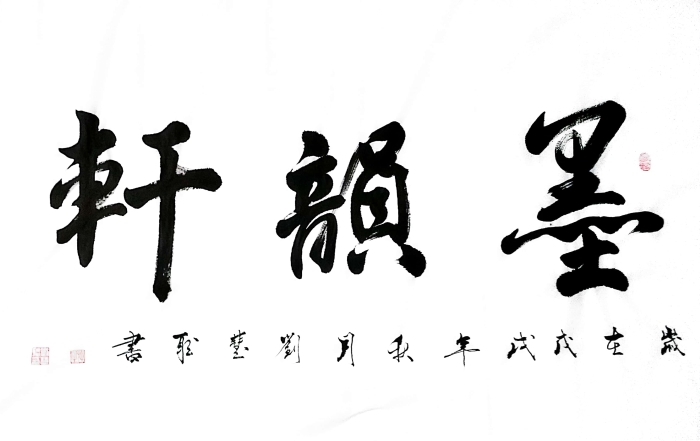 墨韻軒
歲在戊戌年秋月劉藝聪書